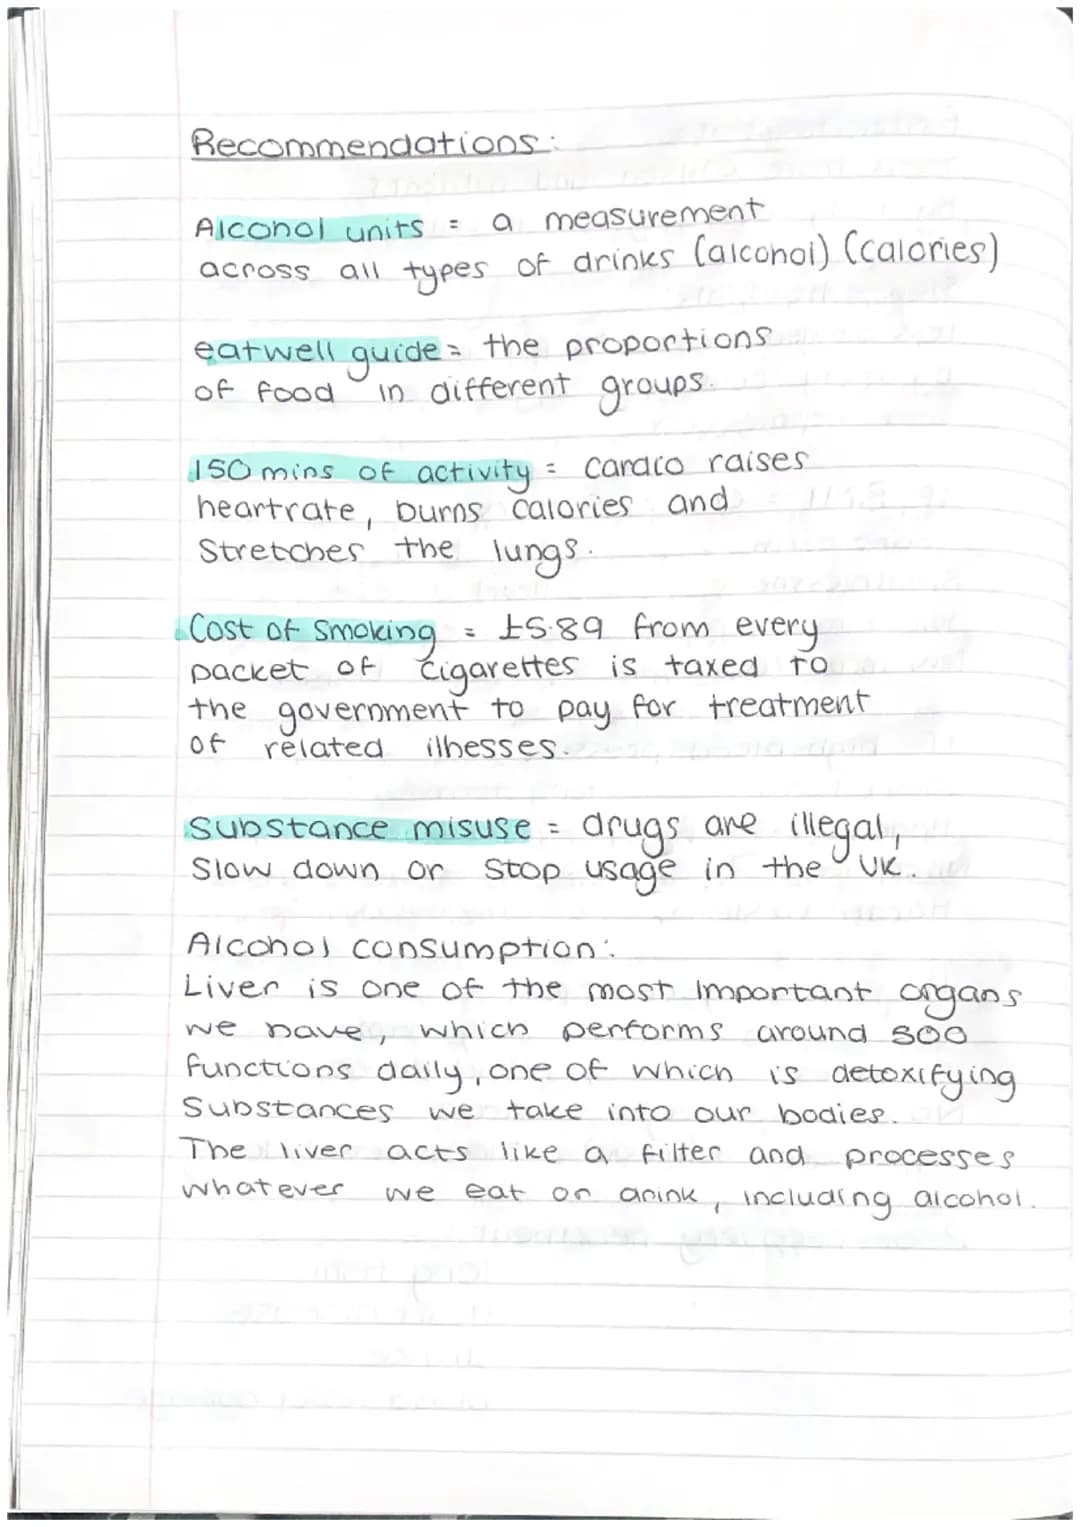 Recommendations:
Alcohol units = a measurement
across all types of drinks (alcohol) (calories)
eatwell guide = the proportions
of food in different groups.
150 mins of activity = Cardio raises
heartrate, burns calories and
Stretches the lungs.
Cost of Smoking = £5.89 from every
packet of cigarettes is taxed to
the government to pay for treatment
of related illnesses.
Substance misuse = drugs are illegal,
Slow down or Stop usage in the UK.
Alcohol consumption:
Liver is one of the most Important organs
we have, which performs around 500
functions daily, one of which is detoxifying
Substances we take into our bodies.
The liver acts like a filter and processes
whatever we eat or drink, including alcohol.